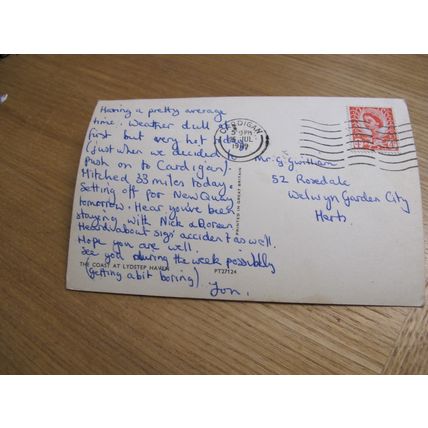 Having a pretty average
time. Weather dull at
first but very hot today
(just when we decided to
push on to Cardigan).
Hitched 33 miles today.
Setting off for New Quay
tomorrow. Hear you've been
staying with Nick & Doreen.
Heard about sigs' accident as well.
Hope you are well.
See you during the week possibly
(getting a bit boring).
Jon.
THE COAST AT LYDSTEP HAVEN
PT27124
PRINTED IN GREAT BRITAIN
CARDIGAN
5 PM
JUL
Mr. G Gwilliam
52 Rosedale
Welwyn Garden City
Herts.